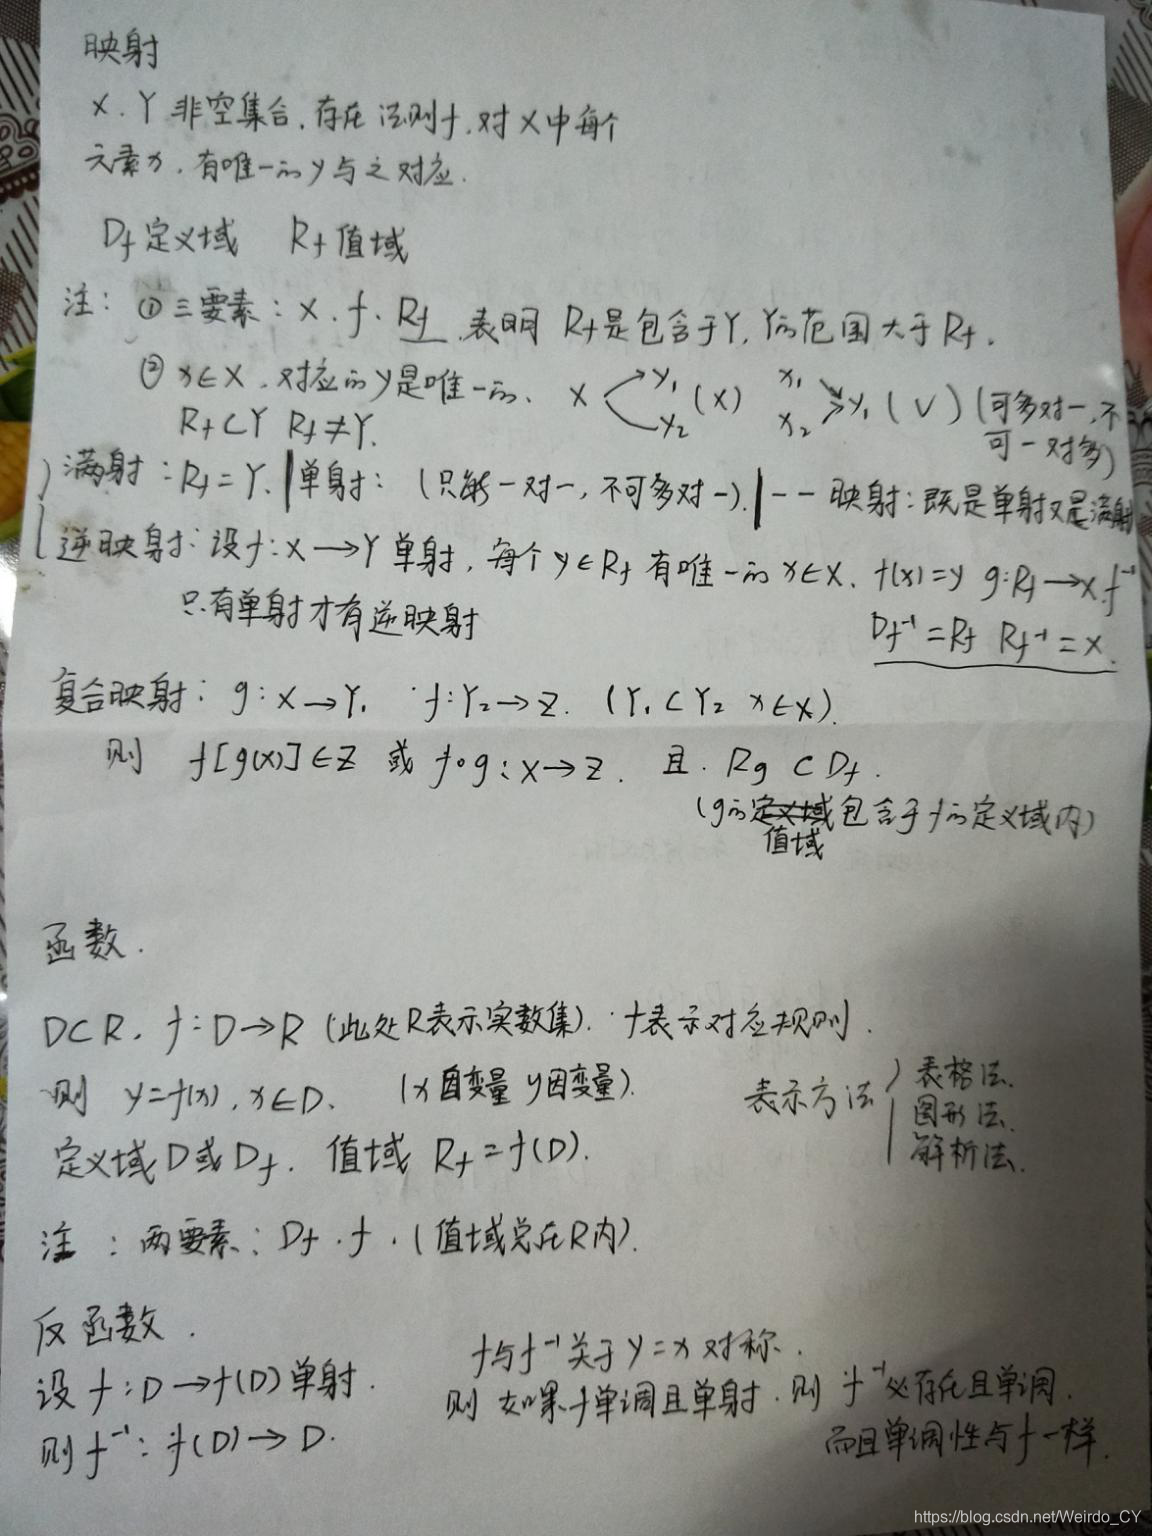 映射
X.Y 非空集合,存在法则f,对X中每个
元素x,有唯一的y与之对应.
Df定义域 Rf值域
注: ①三要素: X.f.Rf 表明 Rf是包含于Y,Y的范围大于Rf.
②x∈X,对应的y是唯一的、 X y₁ y₂ (X) x₁ x₂ y₁ (√) (可多对一,不可一对多)
Rf⊂Y Rf≠Y.
满射:Rf=Y. |单射: (只能一对一,不可多对一). |一一映射:既是单射又是满射
逆映射:设f:X→Y单射,每个y∈Rf有唯一的x∈X. f(x)=y g:Rf→X.f⁻¹
只有单射才有逆映射 Df⁻¹=Rf Rf⁻¹=X.
复合映射: g:X→Y₁ f:Y₂→Z. (Y₁⊂Y₂ x∈X).
则 f[g(x)]∈Z 或 f∘g:X→Z. 且. Rg⊂Df.
(g的定义域包含于f的定义域内)
值域
函数.
D⊂R, f:D→R (此处R表示实数集). f表示对应规则.
则 y=f(x),x∈D. (x自变量 y因变量). 表示方法 表格法.
图形法.
解析法.
定义域D或Df. 值域 Rf=f(D).
注:两要素:Df.f.(值域总在R内).
反函数.
设 f:D→f(D)单射.
则f⁻¹:f(D)→D.
f与f⁻¹关于y=x对称.
则 如果f单调且单射.则 f⁻¹必存在且单调.
而且单调性与f一样.
https://blog.csdn.net/Weirdo_CY